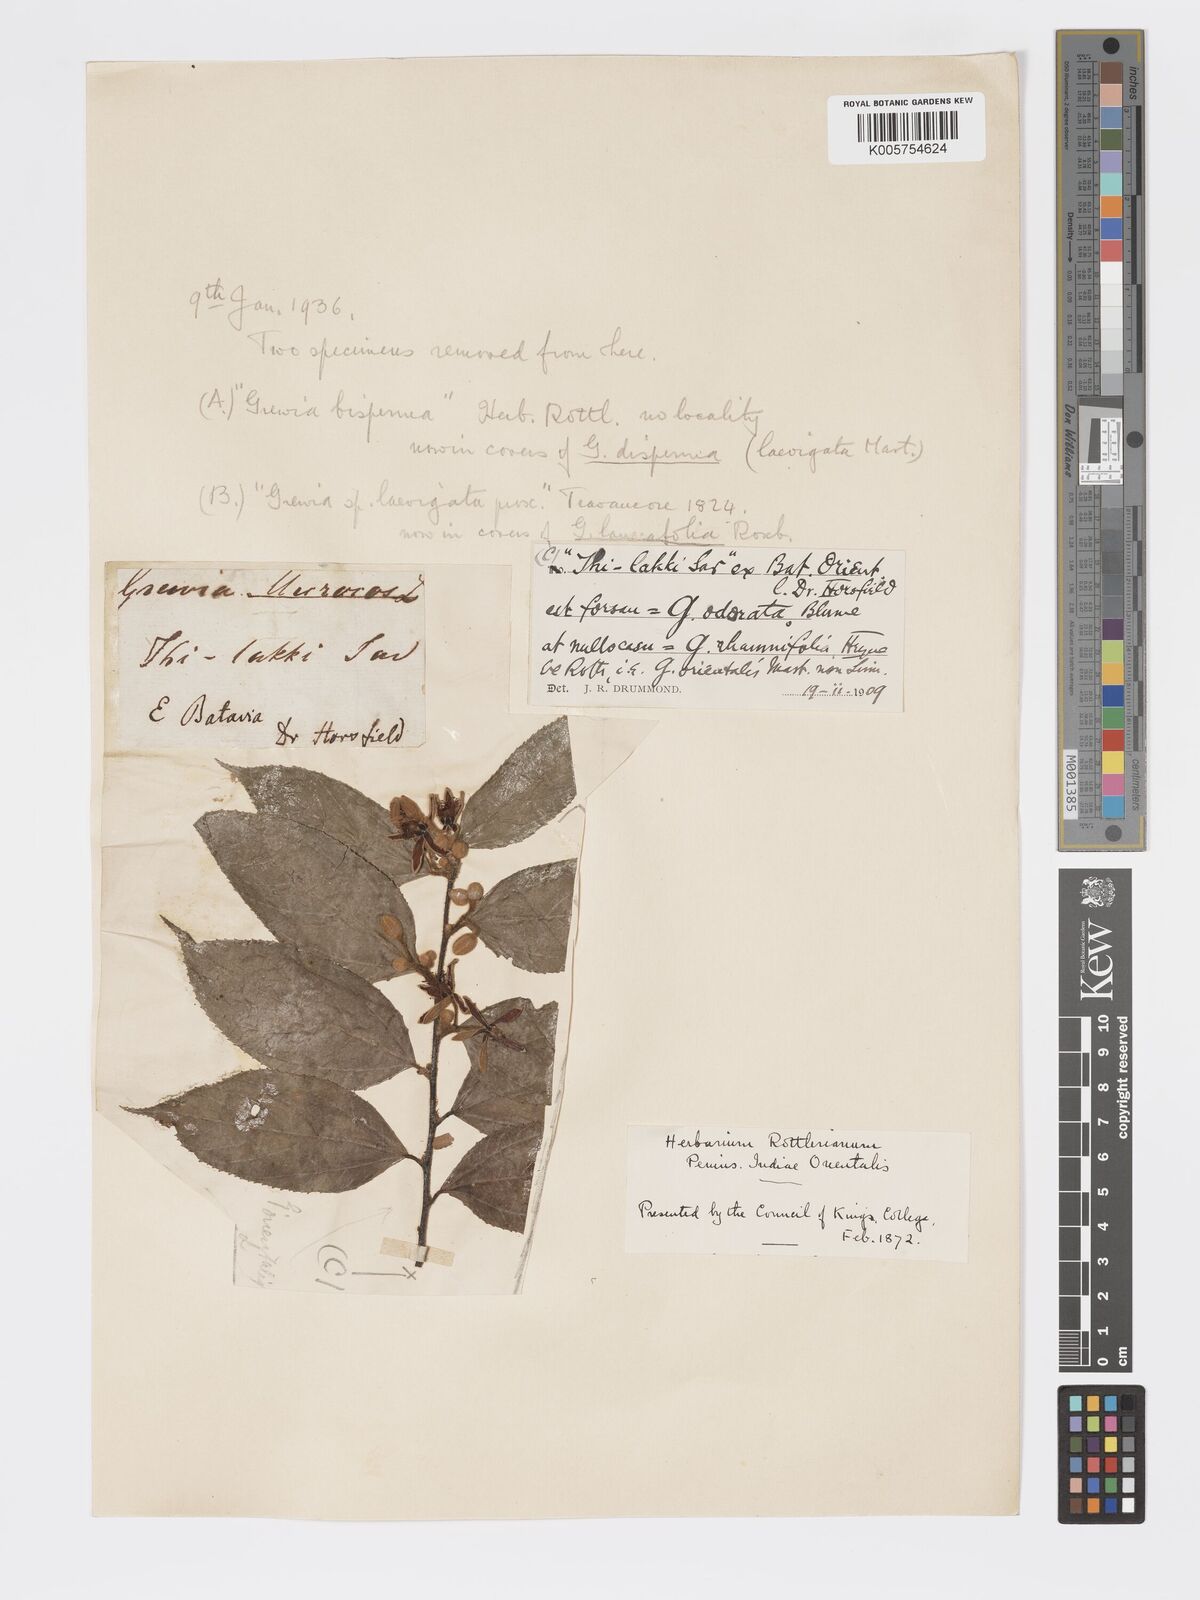 ROYAL BOTANIC GARDENS KEW
K005754624
9th Jan. 1936.
Two specimens removed from here.
(A.) "Grewia bisperma" Herb. Rottl. no locality
now in covers of G. disperma (laevigata Mast.)
(B.) "Grewia sp. laevigata prox." Travancore 1824.
now in covers of G. lanceafolia Roxb.
(C) "Thi-lakki Sar" ex Bat. Orient
l. Dr. Horsfield
est forsan = G. odorata, Blume
at nullo casu = G. rhamnifolia Heyne
ex Roth, i.e. G. orientalis Mast. non Linn.
Det. J. R. DRUMMOND. 19-ii-1909
Grewia Microcos L
Thi-lakki Sar
E Batavia
Dr Horsfield
Herbarium Rottlerianum
Penins. Indiae Orientalis
Presented by the Council of Kings College,
Feb. 1872.
G. orientalis
L
(C)
x
inches
centimetres
Density
Don Williams
M001385
Kew
Royal Botanic Gardens
0 1 2 3 4 5 6 7 8 9 10
cm
copyright reserved